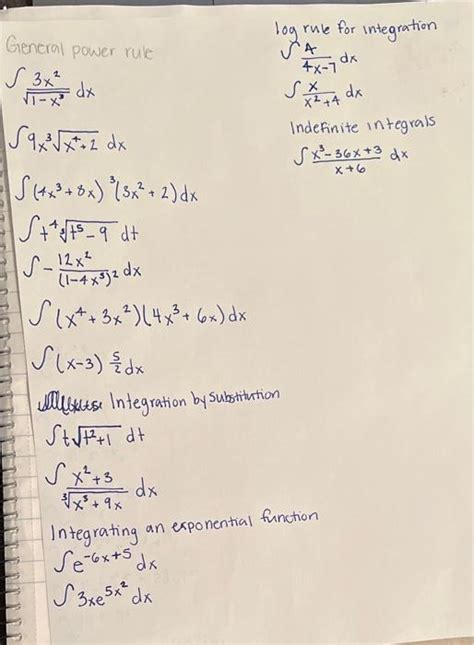 General power rule
∫ 3x²/√(1-x³) dx
∫9x³√(x⁴+2) dx
∫(4x³+8x)³(3x²+2)dx
∫t⁴ ∛(t⁵-9) dt
∫- 12x²/(1-4x³)² dx
∫(x⁴+3x²)(4x³+6x)dx
∫(x-3) 5/2 dx
Integration by Substitution
∫t√(t²+1) dt
∫ (x²+3)/∛(x³+9x) dx
Integrating an exponential function
∫e⁻⁶ˣ⁺⁵ dx
∫3xe^(5x²) dx
log rule for integration
∫ A/(4x-7) dx
∫ x/(x²+4) dx
Indefinite integrals
∫ (x³-36x+3)/(x+6) dx